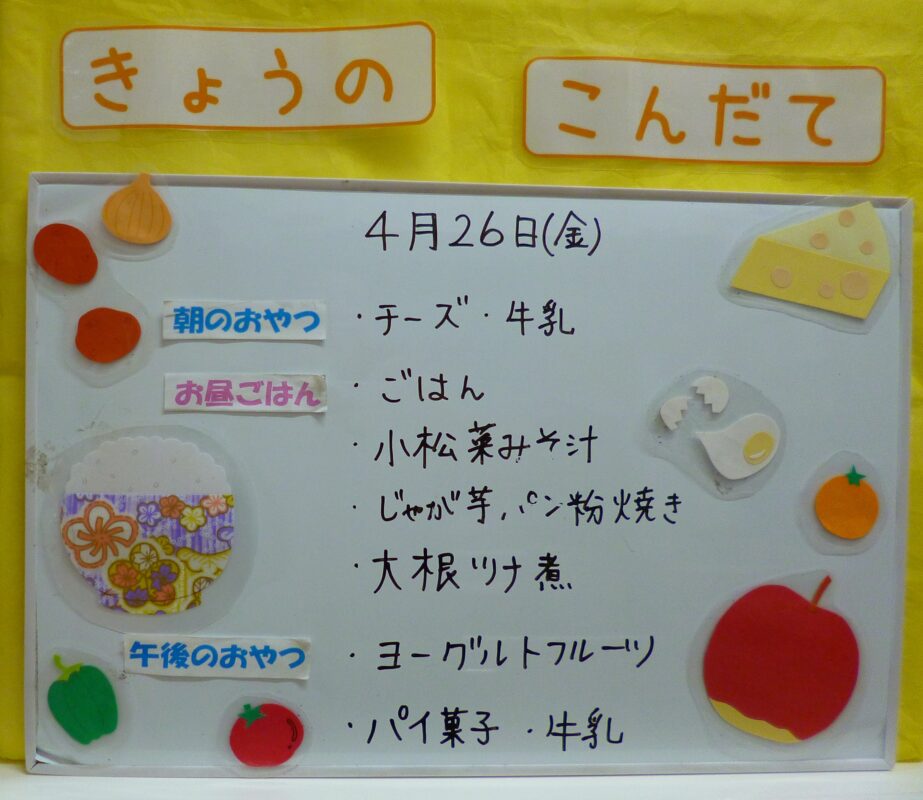 きょうの こんだて
4月26日(金)
朝のおやつ ・チーズ・牛乳
お昼ごはん ・ごはん
・小松菜みそ汁
・じゃが芋パン粉焼き
・大根ツナ煮
午後のおやつ ・ヨーグルトフルーツ
・パイ菓子・牛乳